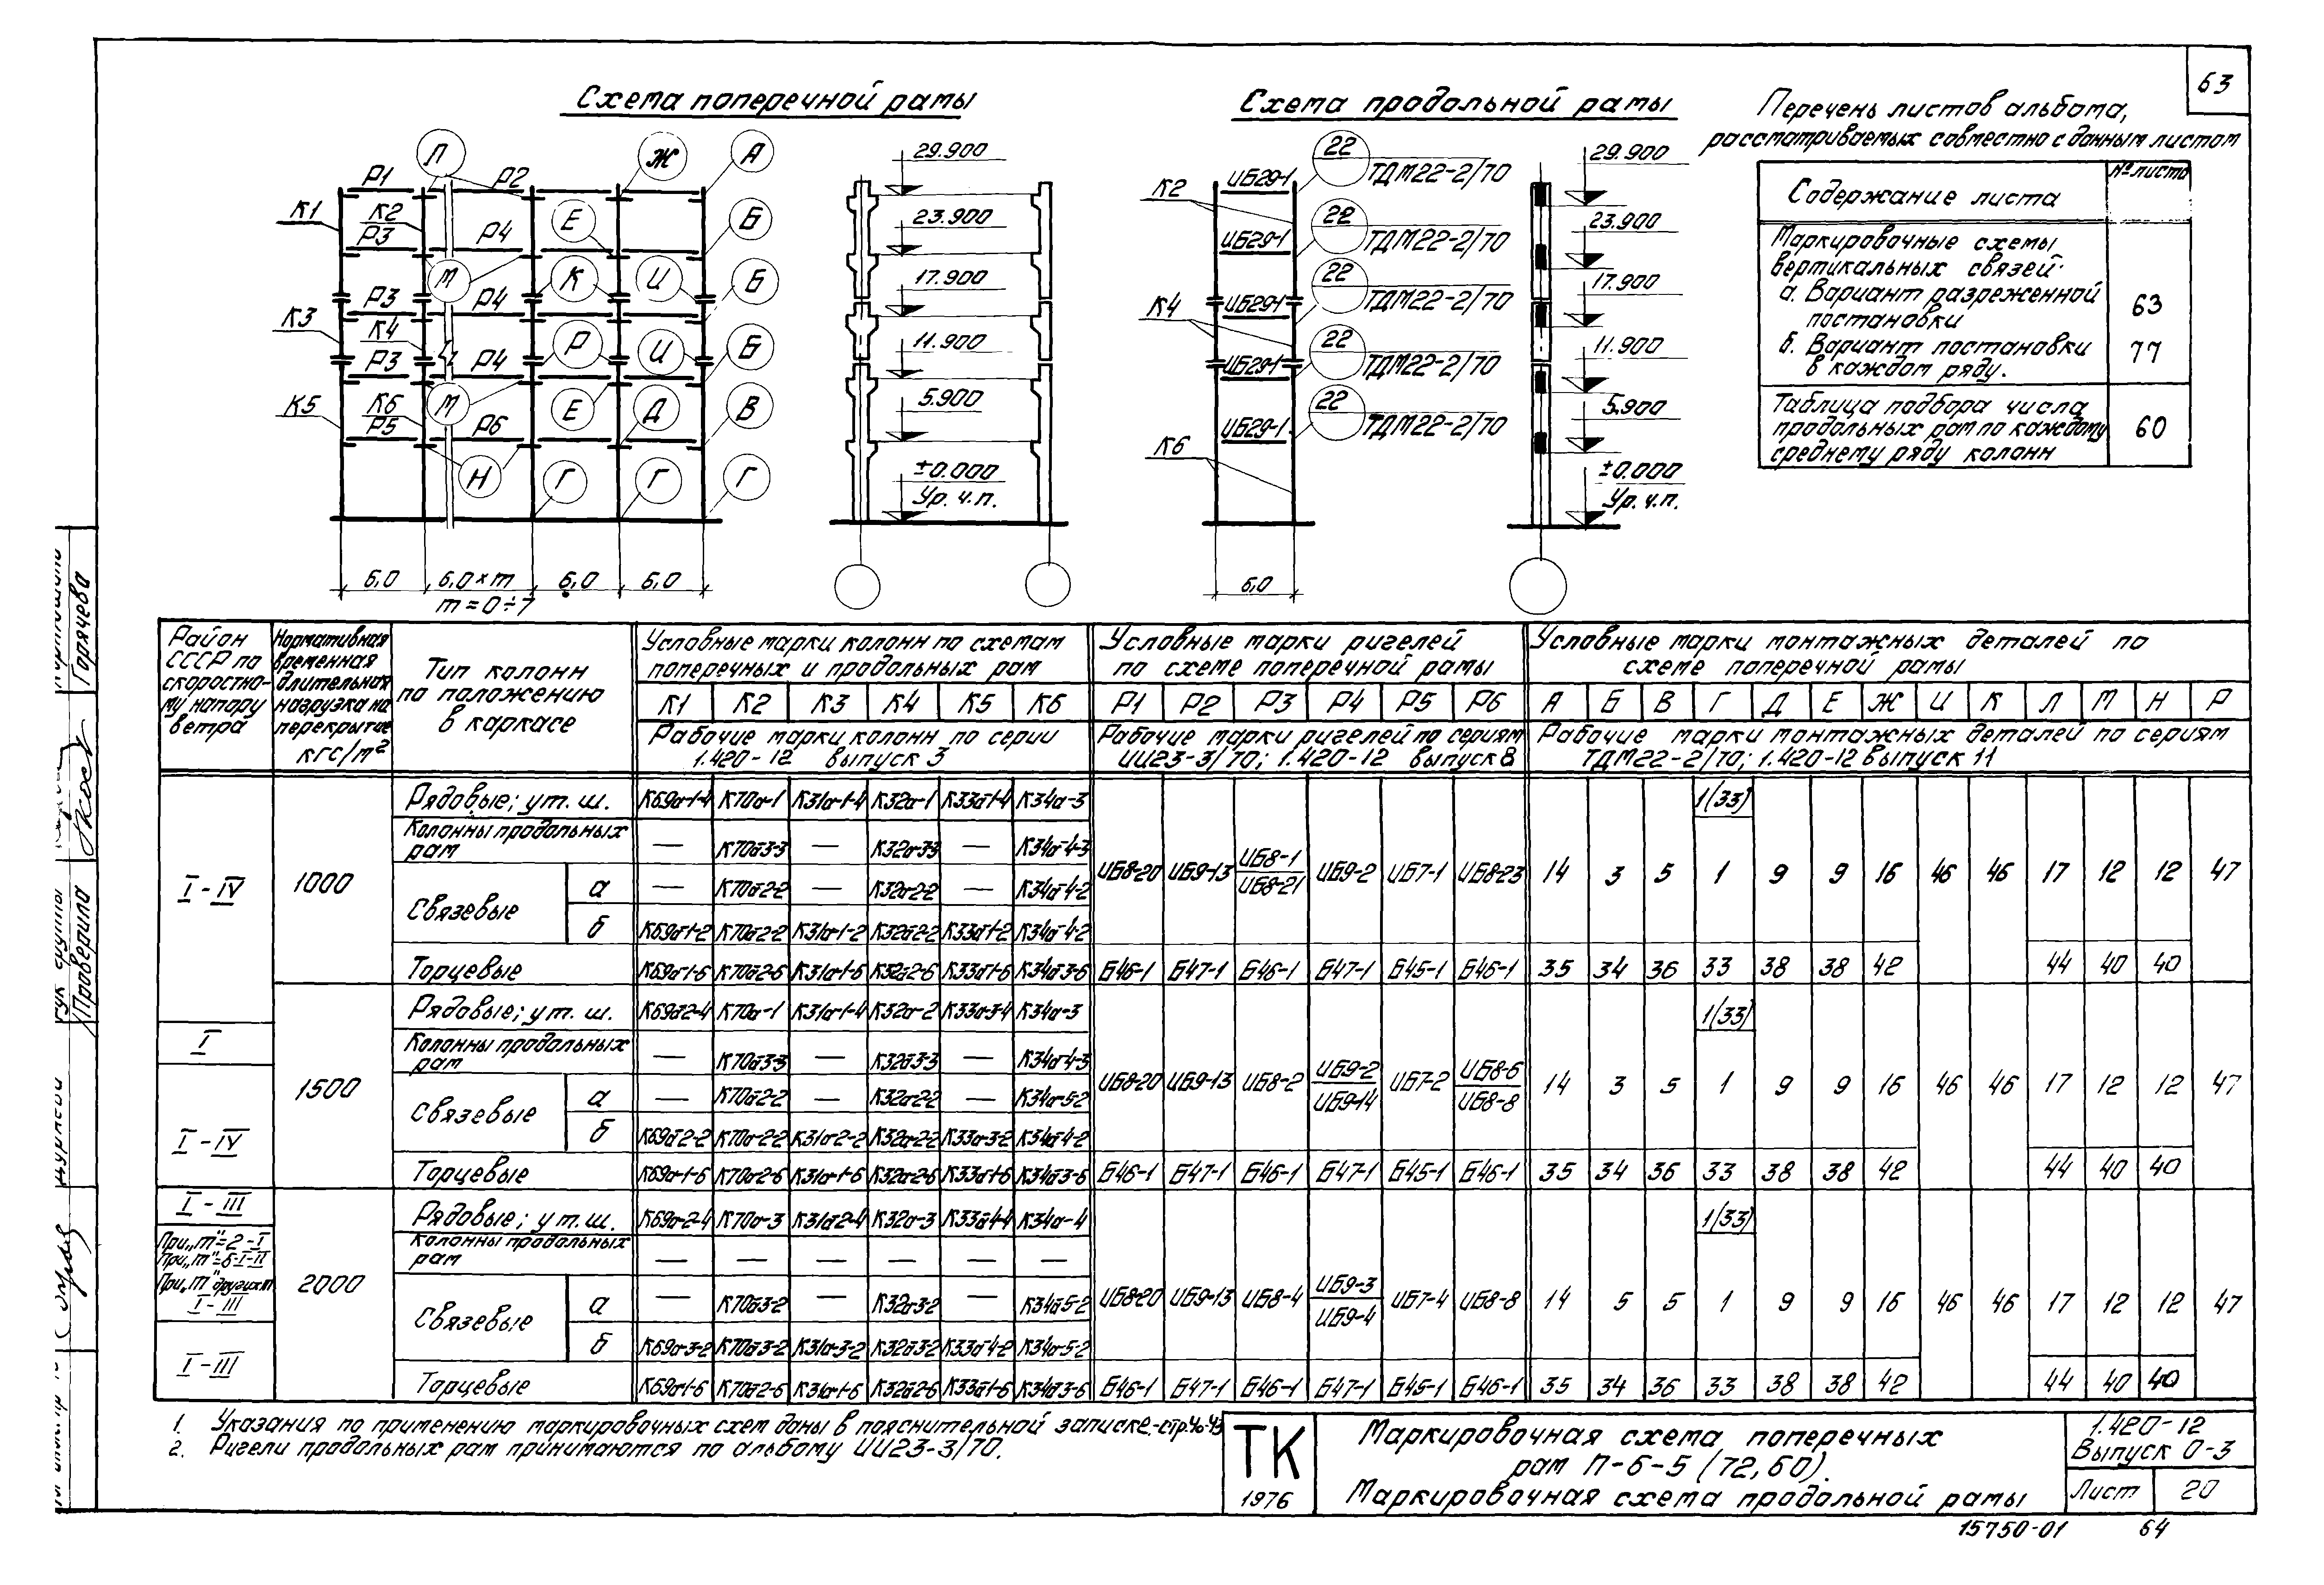 63
Схема поперечной рамы
Схема продольной рамы
Перечень листов альбома,
рассматриваемых совместно с данным листом
Содержание листа
№ листа
Маркировочные схемы
вертикальных связей.
а. Вариант разреженной
постановки
63
б. Вариант постановки
в каждом ряду.
77
Таблица подбора числа
продольных рам по каждому
среднему ряду колонн
60
Л Ж А
Р1 Р2
К1 К2 Р3 Р4 Е Б
М К И Б
Р3 Р4
К3 К4 Р И Б
Р3 Р4
К5 К6 М Е Д В
Р5 Р6
Н Г Г Г
6,0 6,0×m 6,0 6,0
m=0÷7
29.900
23.900
17.900
11.900
5.900
±0.000
Ур. ч.п.
К2 ИБ29-1 22 ТДМ22-2/70
ИБ29-1 22 ТДМ22-2/70
К4 ИБ29-1 22 ТДМ22-2/70
ИБ29-1 22 ТДМ22-2/70
К6 ИБ29-1 22 ТДМ22-2/70
6,0
29.900
23.900
17.900
11.900
5.900
±0.000
Ур. ч.п.
Район
СССР по
скоростно-
му напору
ветра
Нормативная
временная
длительная
нагрузка на
перекрытие
кгс/м²
Тип колонн
по положению
в каркасе
Условные марки колонн по схемам
поперечных и продольных рам
К1 К2 К3 К4 К5 К6
Рабочие марки колонн по серии
1.420-12 выпуск 3
Условные марки ригелей
по схеме поперечной рамы
Р1 Р2 Р3 Р4 Р5 Р6
Рабочие марки ригелей по сериям
ИИ23-3/70; 1.420-12 выпуск 8
Условные марки монтажных деталей по
схеме поперечной рамы
А Б В Г Д Е Ж И К Л М Н Р
Рабочие марки монтажных деталей по сериям
ТДМ22-2/70; 1.420-12 выпуск 11
I-IV
1000
Рядовые; у т. ш. К69а-1-4 К70а-1 К31а-1-4 К32а-1 К33а-1-4 К34а-3 1(33)
Колонны продольных
рам — К70а-3-3 — К32а-3-3 — К34а-4-3
ИБ8-20 ИБ9-13 ИБ8-1 ИБ8-21 ИБ9-2 ИБ7-1 ИБ8-23 14 3 5 1 9 9 16 46 46 17 12 12 47
Связевые
а — К70а-2-2 — К32а-2-2 — К34а-4-2
б К69а-1-2 К70а-2-2 К31а-1-2 К32а-2-2 К33а-1-2 К34а-4-2
Торцевые К69а-1-6 К70а-2-6 К31а-1-6 К32а-2-6 К33а-1-6 К34а-3-6 Б46-1 Б47-1 Б46-1 Б47-1 Б45-1 Б46-1 35 34 36 33 38 38 42 44 40 40
I
I-IV
1500
Рядовые; у т. ш. К69а-2-4 К70а-1 К31а-1-4 К32а-2 К33а-3-4 К34а-3 1(33)
Колонны продольных
рам — К70а-3-3 — К32а-3-3 — К34а-4-3
ИБ8-20 ИБ9-13 ИБ8-2 ИБ9-2 ИБ9-14 ИБ7-2 ИБ8-6 ИБ8-8 14 3 5 1 9 9 16 46 46 17 12 12 47
Связевые
а — К70а-2-2 — К32а-2-2 — К34а-5-2
б К69а-2-2 К70а-2-2 К31а-2-2 К32а-2-2 К33а-3-2 К34а-4-2
Торцевые К69а-1-6 К70а-2-6 К31а-1-6 К32а-2-6 К33а-1-6 К34а-3-6 Б46-1 Б47-1 Б46-1 Б47-1 Б45-1 Б46-1 35 34 36 33 38 38 42 44 40 40
I-III
При „m"=2-I
При „m"=6-I-II
При „m" других m
I-III
I-III
2000
Рядовые; у т. ш. К69а-2-4 К70а-3 К31а-2-4 К32а-3 К33а-4-4 К34а-4 1(33)
Колонны продольных
рам — — — — — —
Связевые
а — К70а-3-2 — К32а-3-2 — К34а-5-2
ИБ8-20 ИБ9-13 ИБ8-4 ИБ9-3 ИБ9-4 ИБ7-4 ИБ8-8 14 5 5 1 9 9 16 46 46 17 12 12 47
б К69а-3-2 К70а-3-2 К31а-3-2 К32а-3-2 К33а-4-2 К34а-5-2
Торцевые К69а-1-6 К70а-2-6 К31а-1-6 К32а-2-6 К33а-1-6 К34а-3-6 Б46-1 Б47-1 Б46-1 Б47-1 Б45-1 Б46-1 35 34 36 33 38 38 42 44 40 40
1. Указания по применению маркировочных схем даны в пояснительной записке-стр.
2. Ригели продольных рам принимаются по альбому ИИ23-3/70.
ТК
1976
Маркировочная схема поперечных
рам П-6-5 (72,60).
Маркировочная схема продольной рамы
1.420-12
Выпуск 0-3
Лист 20
15750-01 64
Горячева
Проверила